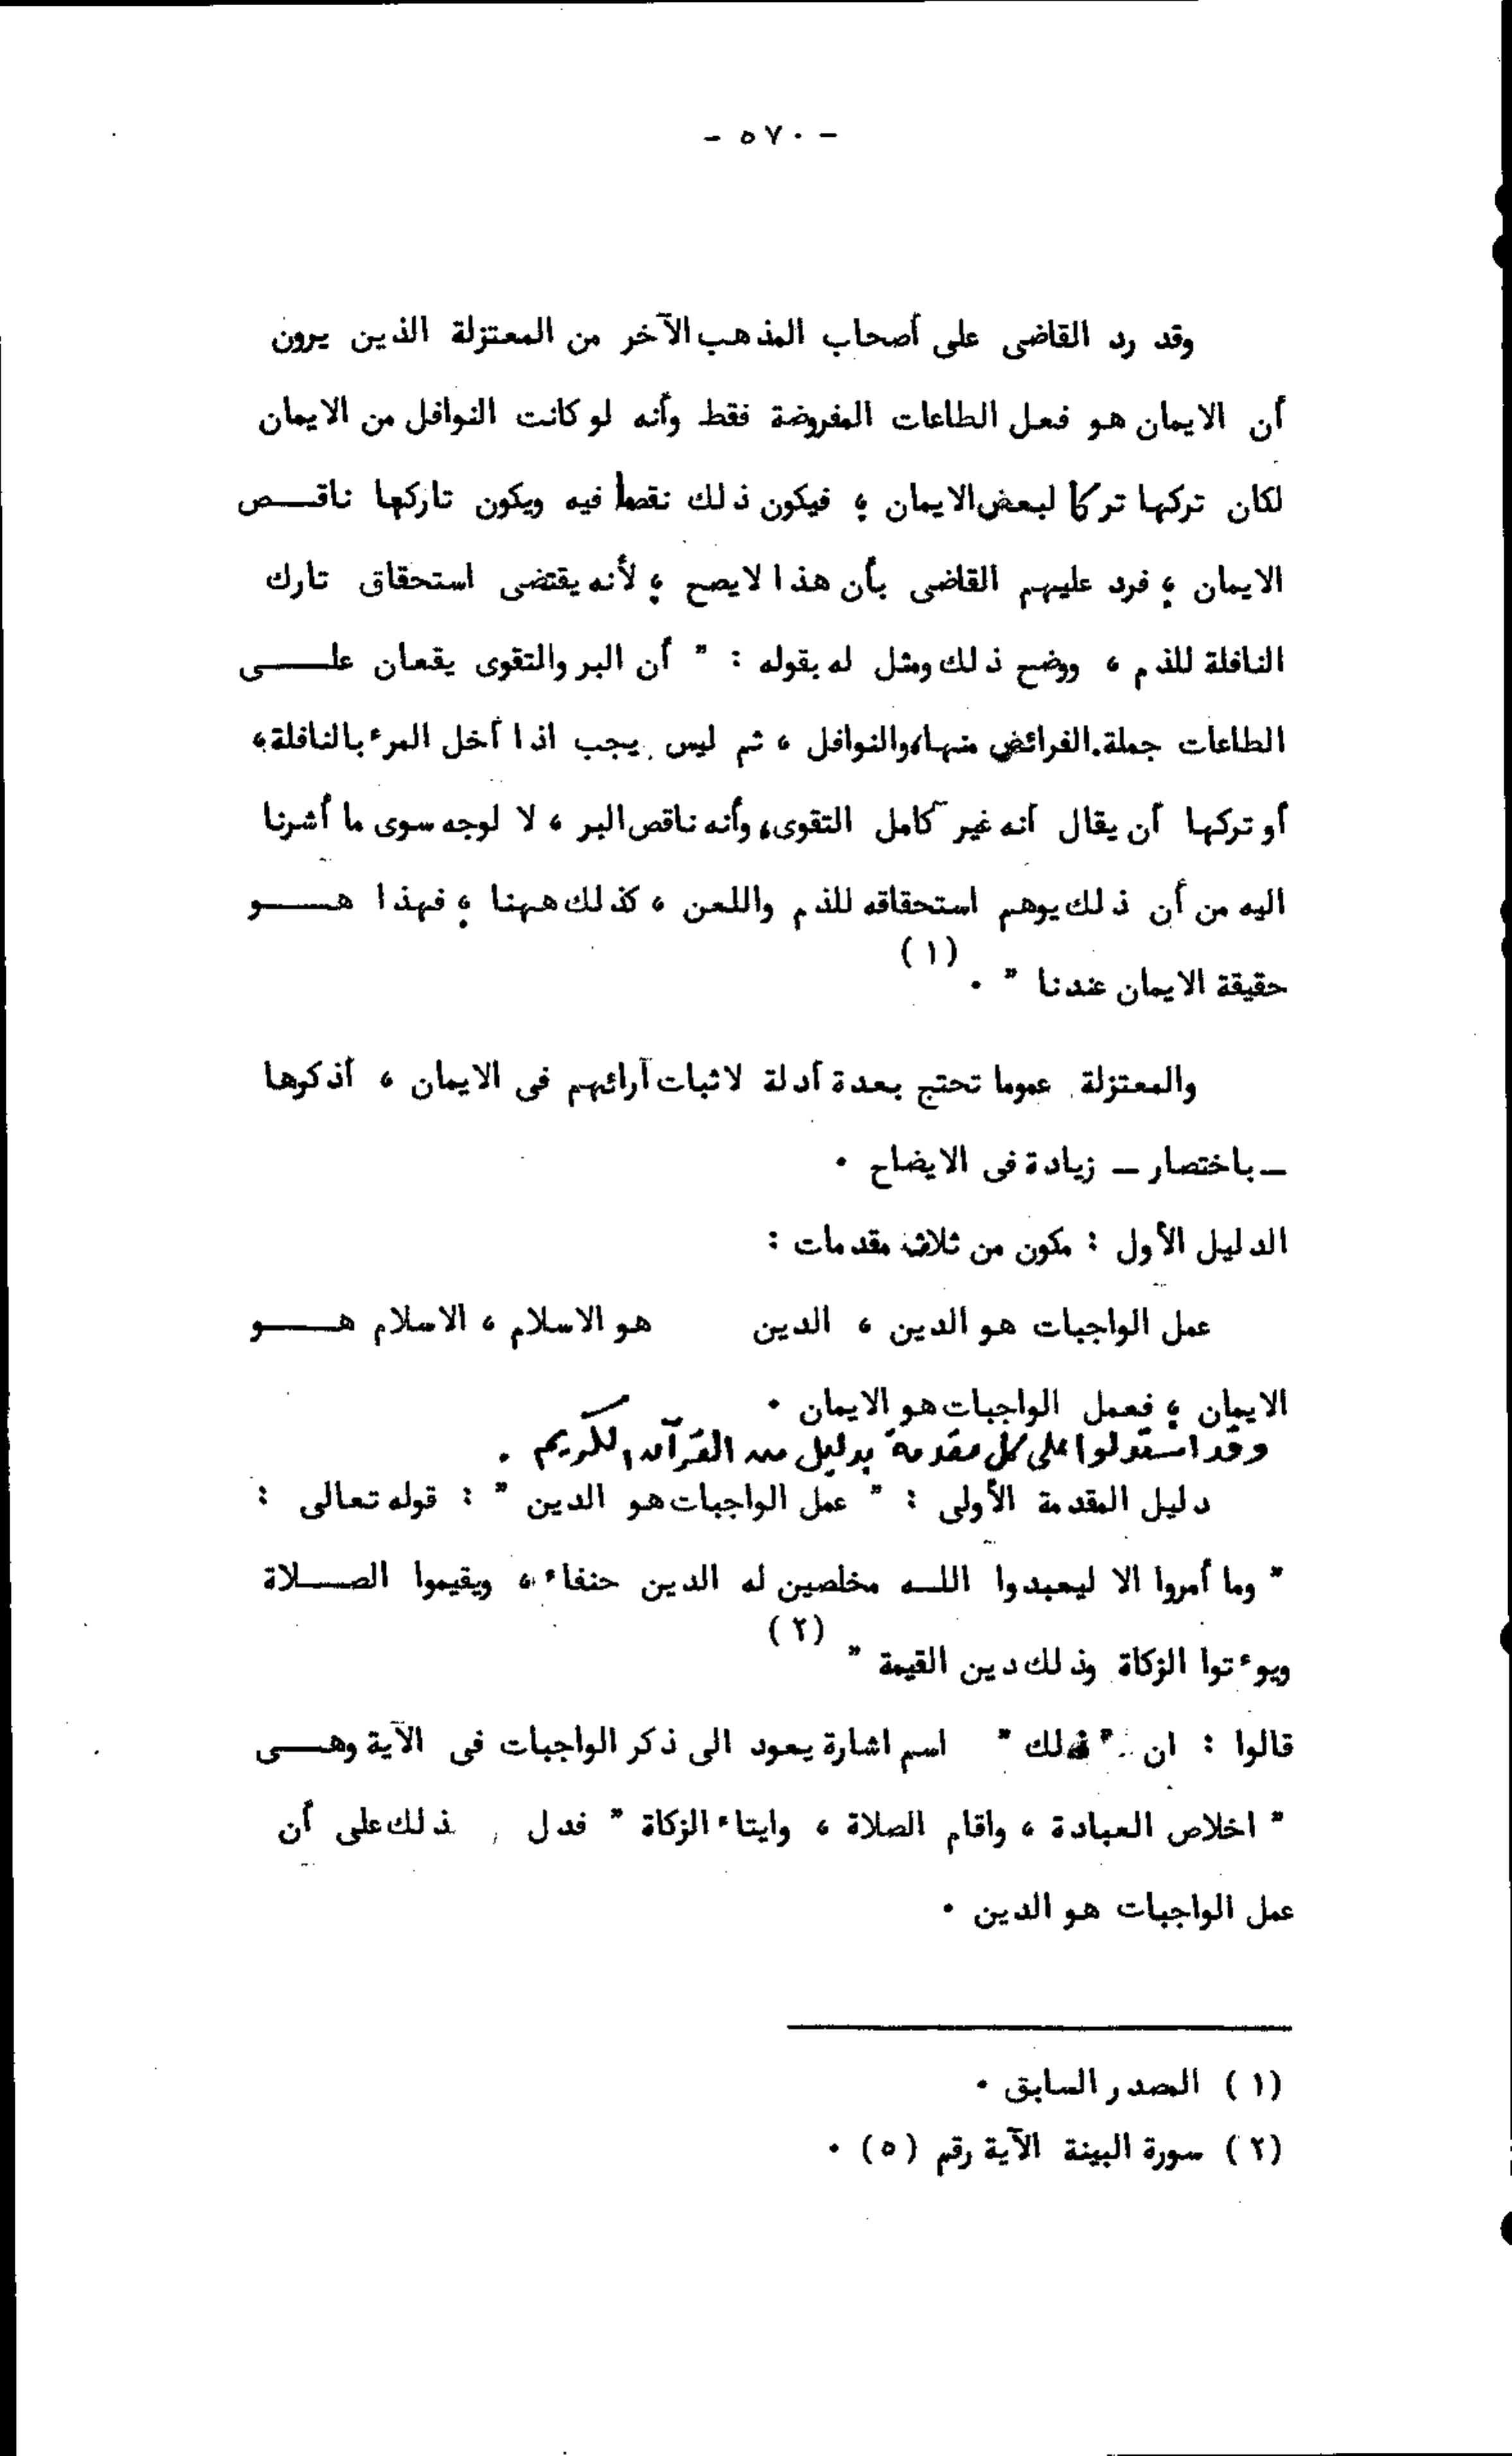 - ٥٧٠ -
وقد رد القاضى على أصحاب المذهب الآخر من المعتزلة الذين يرون
أن الايمان هو فعل الطاعات المفروضة فقط وأنه لو كانت النوافل من الايمان
لكان تركها تركا لبعض الايمان ؛ فيكون ذلك نقصا فيه ويكون تاركها ناقـــص
الايمان ؛ فرد عليهم القاضى بأن هذا لايصح ؛ لأنه يقتضى استحقاق تارك
النافلة للذم ، ووضح ذلك ومثل له بقوله : " أن البر والتقوى يقعان علـــى
الطاعات جملة . الفرائض منها، والنوافل ، ثم ليس يجب اذا أخل المرء بالنافلة،
أو تركها أن يقال أنه غير كامل التقوى، وأنه ناقص البر ، لا لوجه سوى ما أشرنا
اليه من أن ذلك يوهم استحقاقه للذم واللعن ، كذلك ههنا ؛ فهذا هـــو
حقيقة الايمان عندنا " . (١)
والمعتزلة عموما تحتج بعدة أدلة لاثبات آرائهم فى الايمان ، أذكرها
ـ باختصار ـ زيادة فى الايضاح .
الدليل الأول : مكون من ثلاث مقدمات :
عمل الواجبات هو الدين ، الدين هو الاسلام ، الاسلام هـــو
الايمان ؛ فعمل الواجبات هو الايمان .
وقد استدلوا على كل مقدمة بدليل من القرآن الكريم .
دليل المقدمة الأولى : " عمل الواجبات هو الدين " : قوله تعالى :
" وما أمروا الا ليعبدوا اللــه مخلصين له الدين حنفاء ، ويقيموا الصـــلاة
ويوءتوا الزكاة وذلك دين القيمة " (٢)
قالوا : ان " ذلك " اسم اشارة يعود الى ذكر الواجبات فى الآية وهـــى
" اخلاص العبادة ، واقام الصلاة ، وايتاء الزكاة " فدل ذلك على أن
عمل الواجبات هو الدين .
(١) المصدر السابق .
(٢) سورة البينة الآية رقم (٥) .